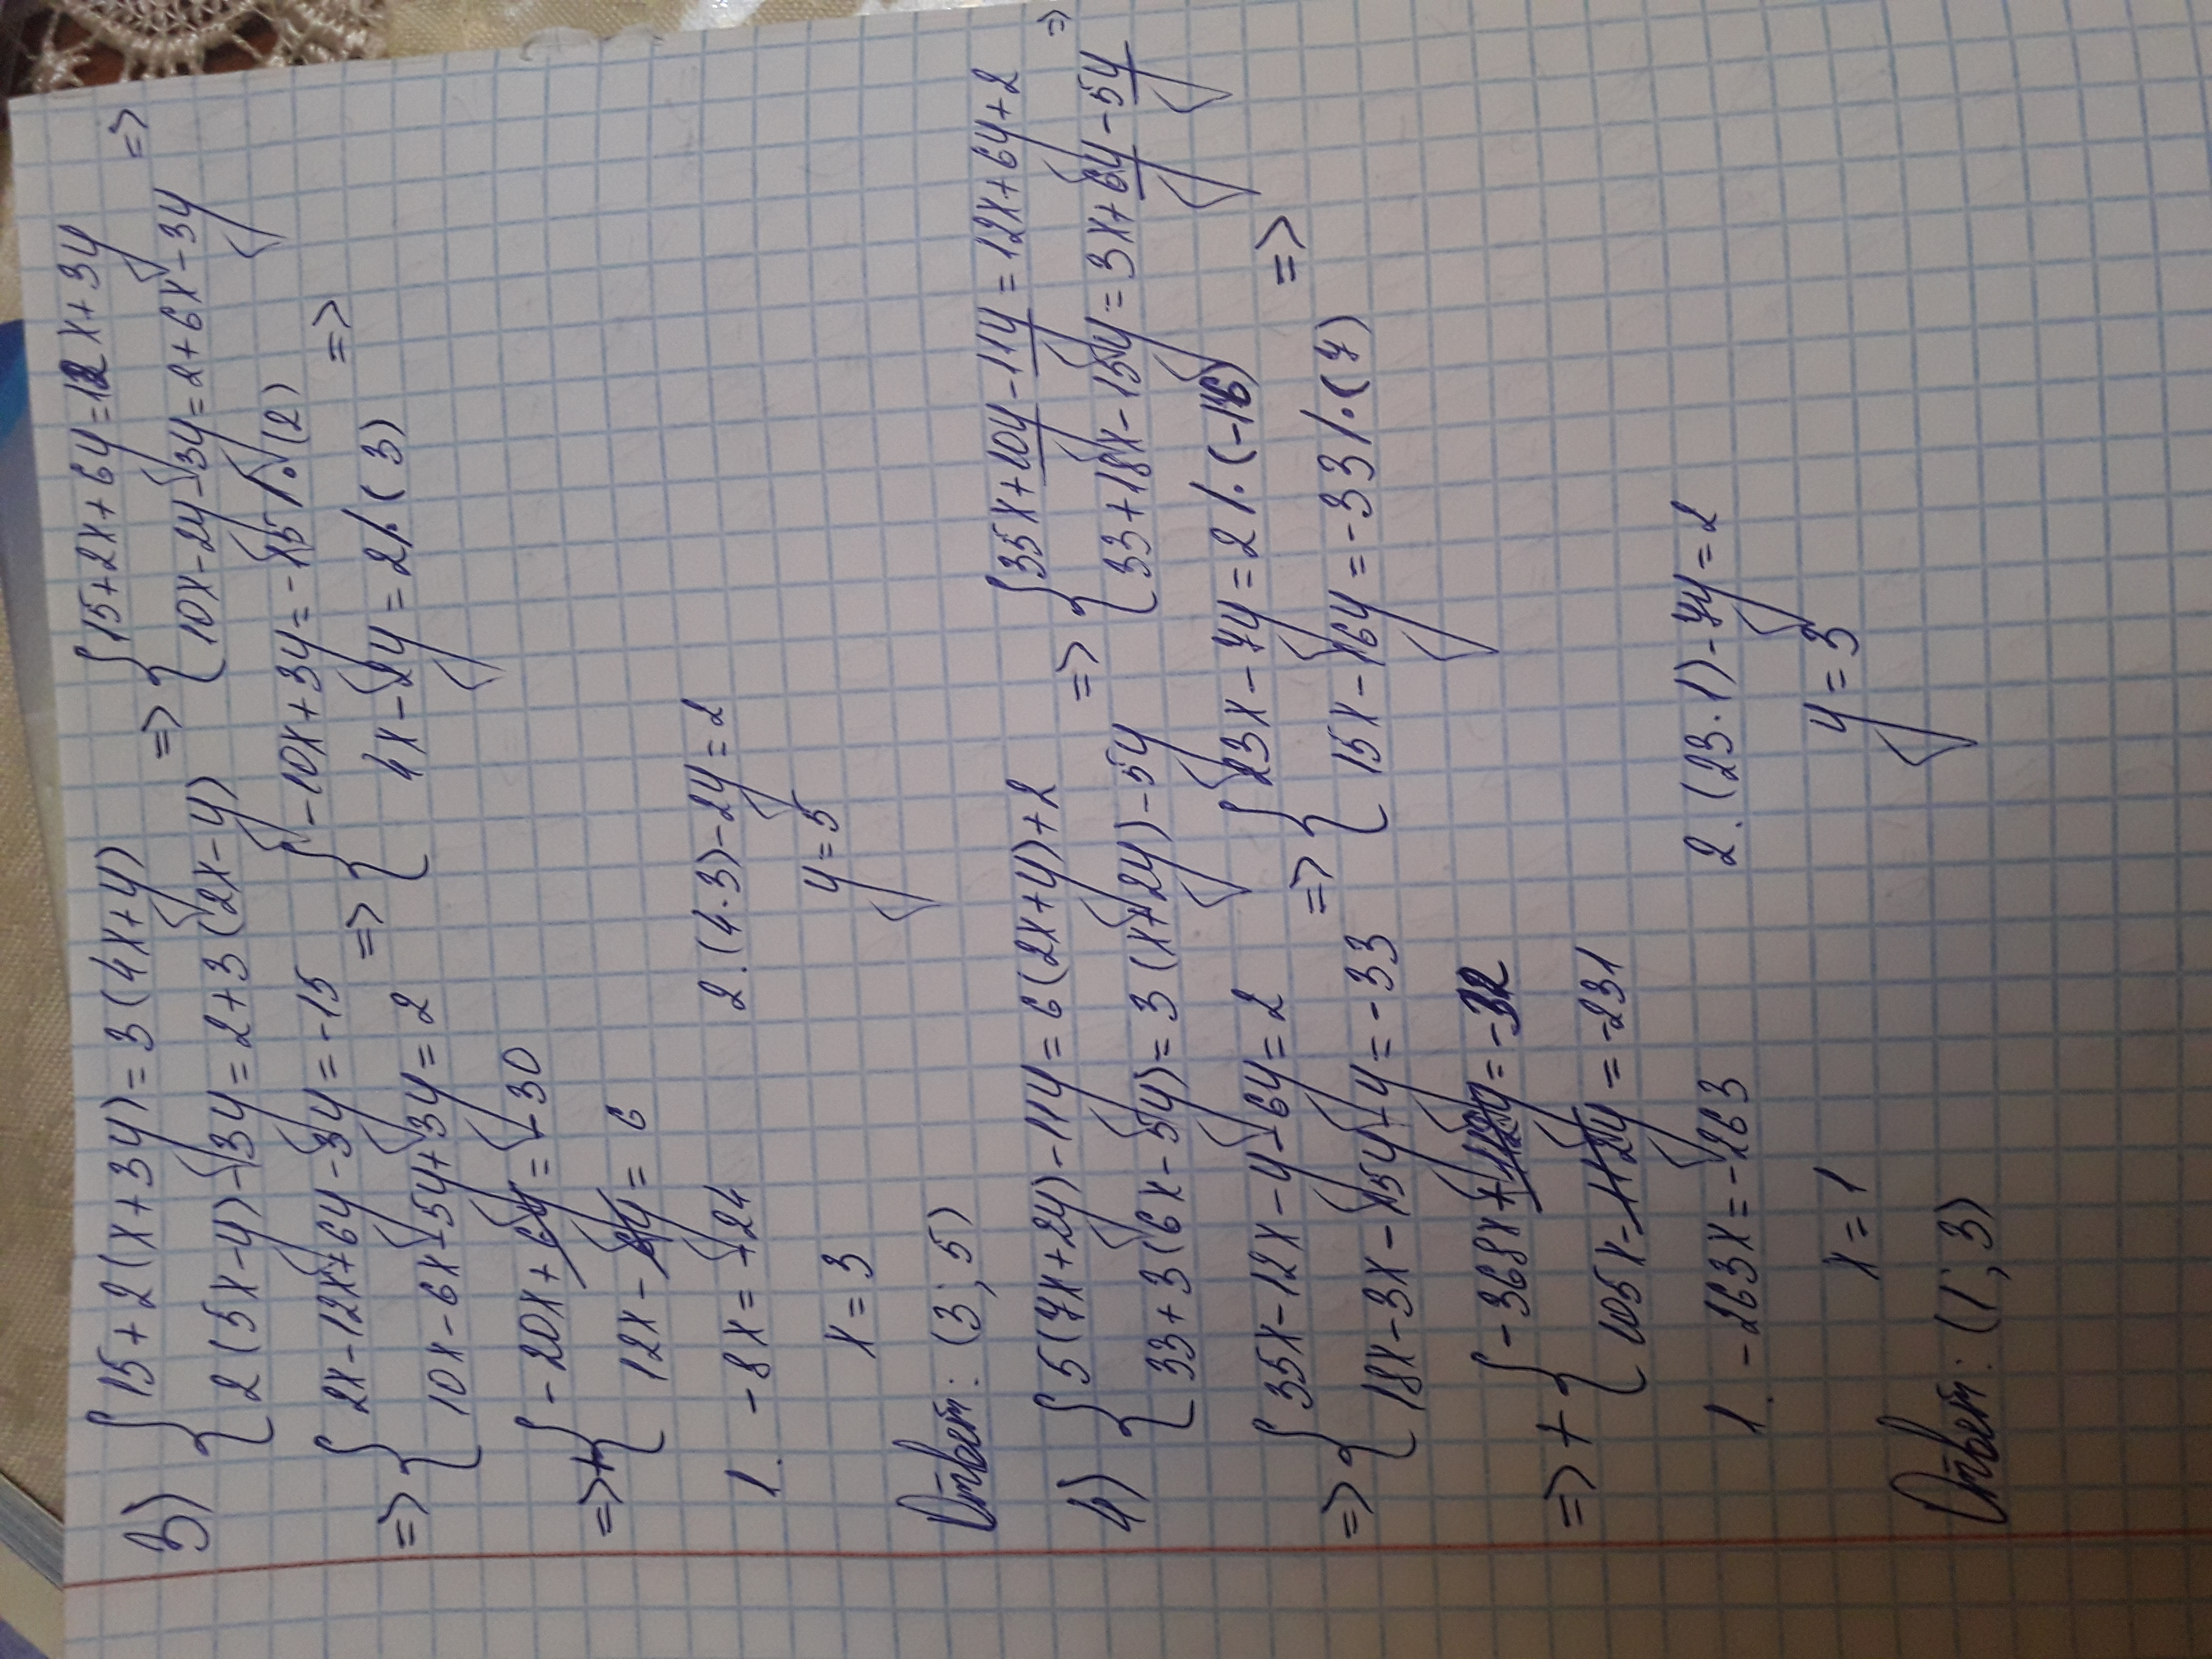 3) { 15+2(x+3y)=3(4x+y)
2(5x-y)-3y=2+3(2x-y)
=> { 15+2x+6y=12x+3y
10x-2y-3y=2+6x-3y =>
=> { 2x-12x+6y-3y=-15
10x-6x-5y+3y=2
=> { -10x+3y=-15 /·(2)
4x-2y=2 /·(3) =>
=>+ { -20x+6y=-30
12x-6y=6
1. -8x=-24
x=3
2. (4·3)-2y=2
y=5
Ответ: (3; 5)
4) { 5(7x+2y)-11y=6(2x+y)+2
33+3(6x-5y)=3(x+2y)-5y
=> { 35x+10y-11y=12x+6y+2
33+18x-15y=3x+6y-5y =>
=> { 35x-12x-y-6y=2
18x-3x-15y-y=-33
=> { 23x-7y=2 /·(-16)
15x-16y=-33 /·(7) =>
=> + { -368x+112y=-32
105x-112y=-231
1. -263x=-263
x=1
2. (23·1)-7y=2
y=3
Ответ: (1; 3)